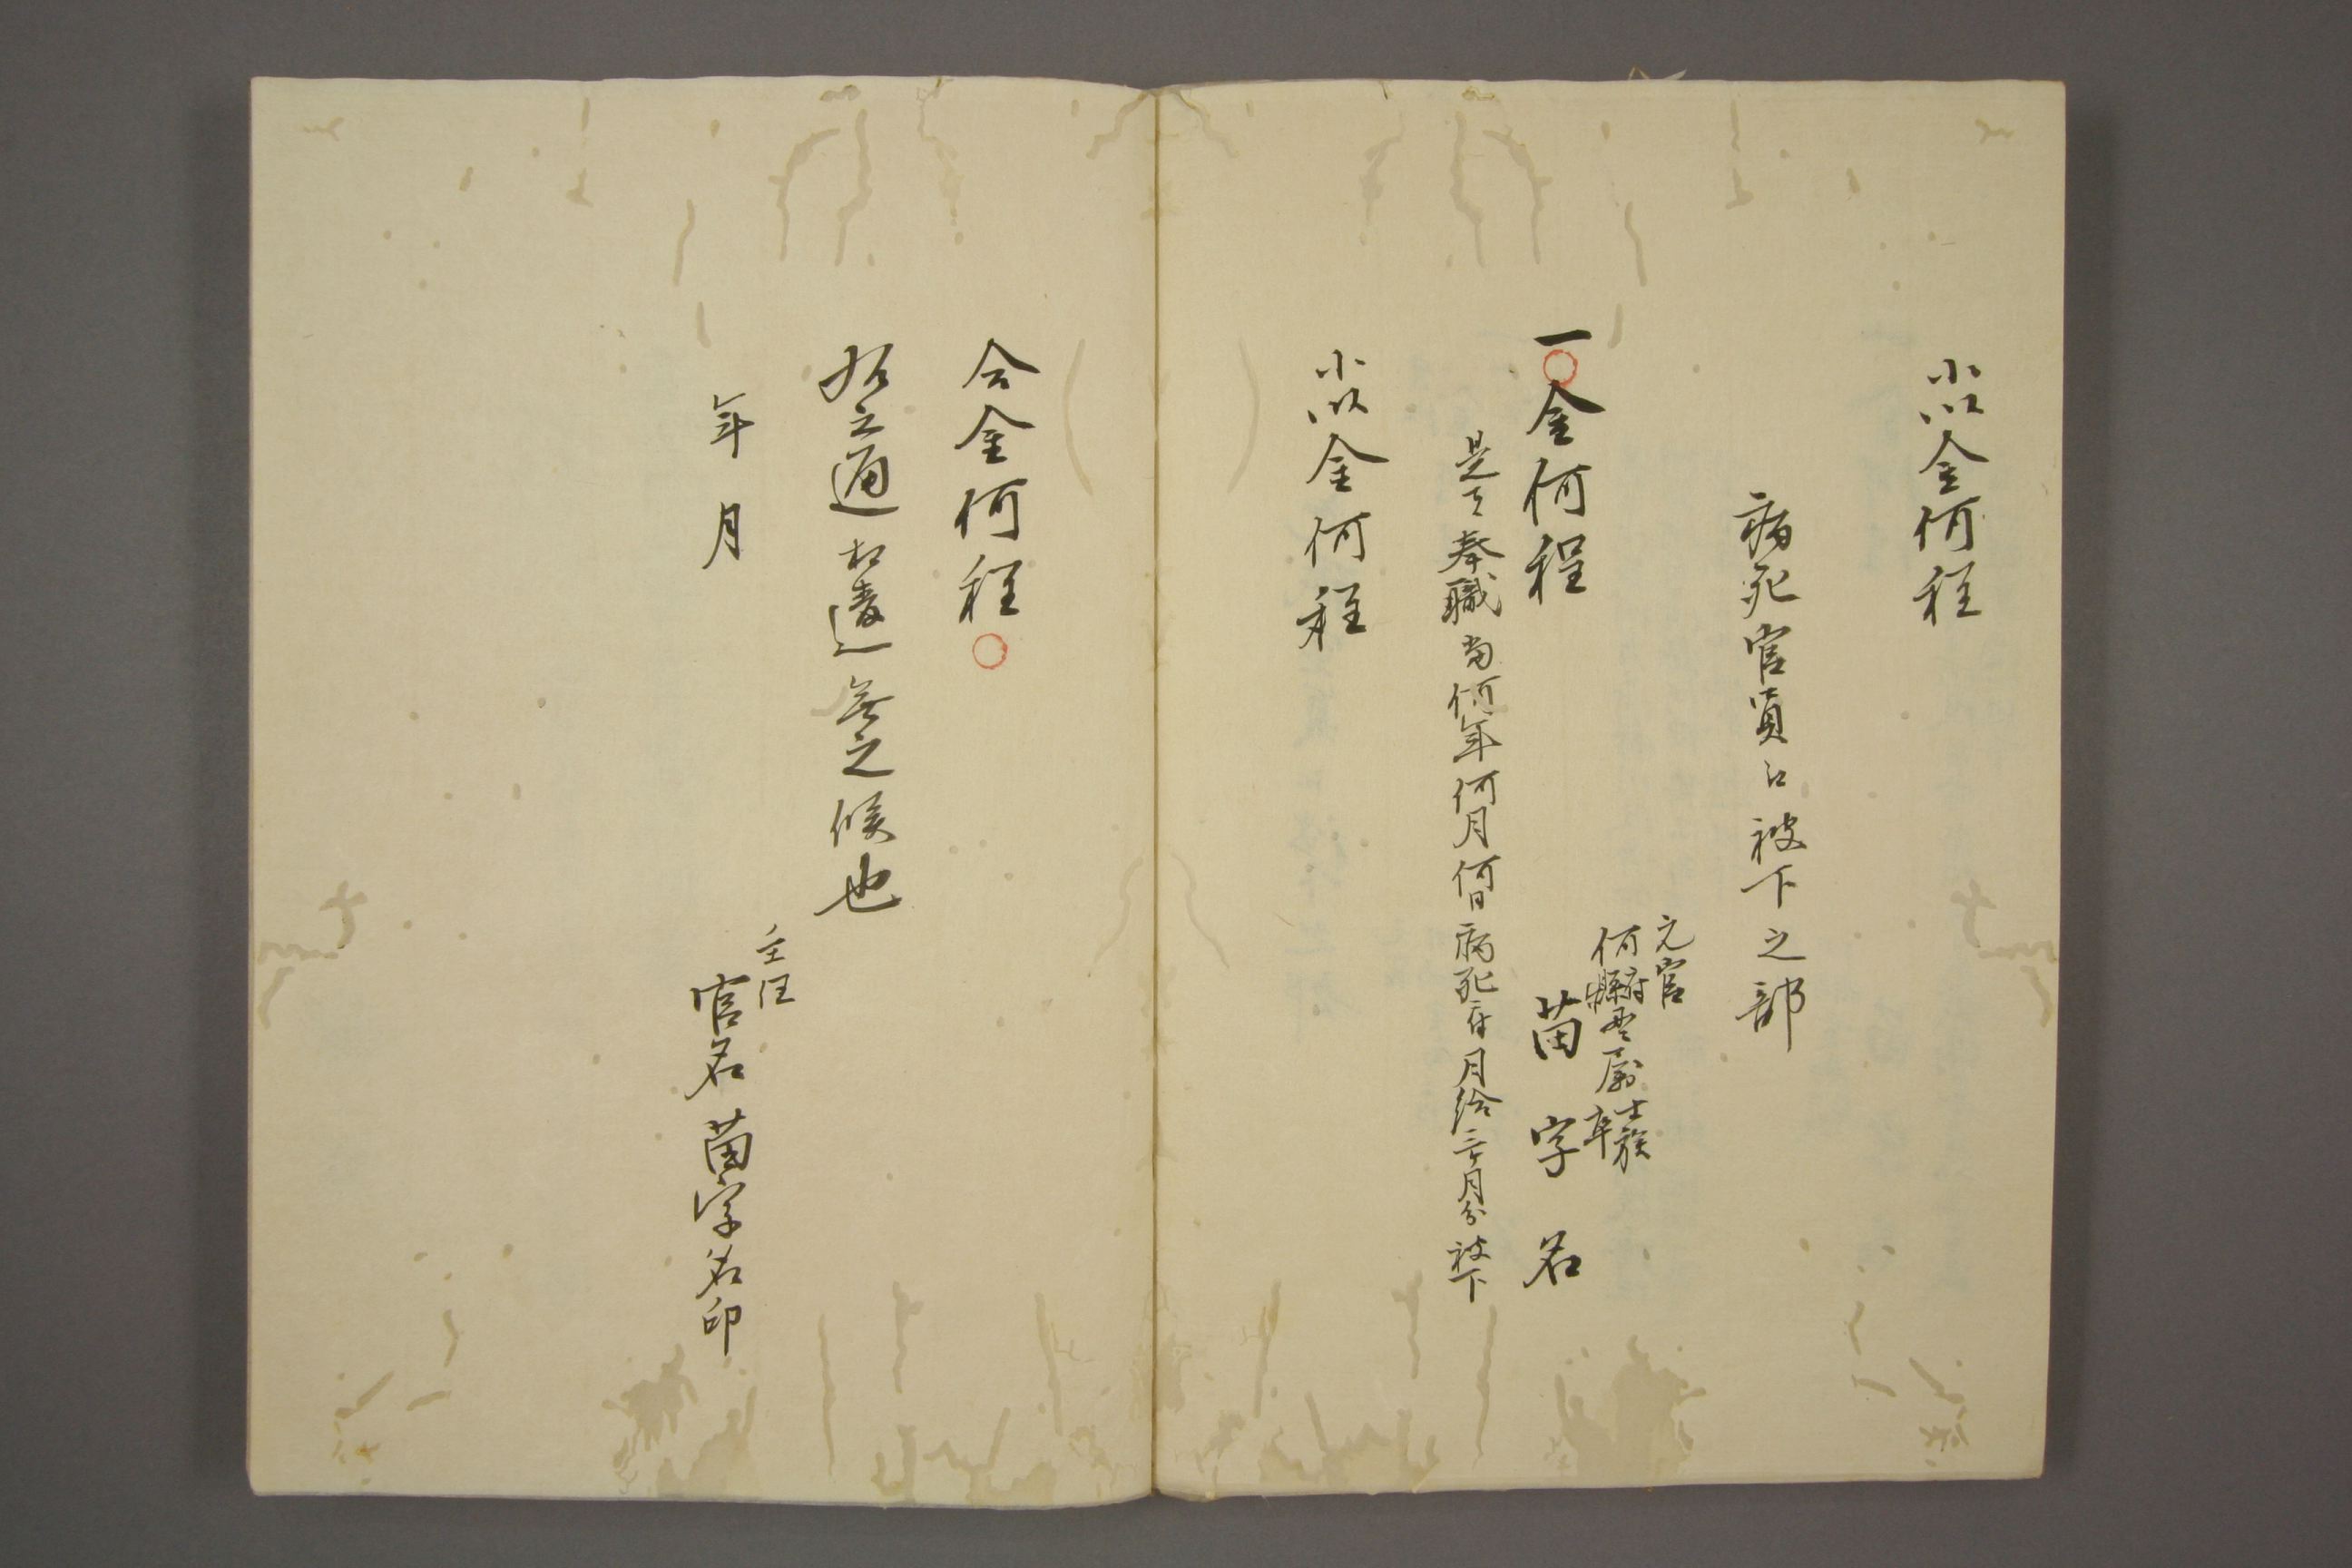 小以金何程
病死官員江被下之部
元官
何府縣貫属士族卒
一〇金何程　苗字名
是者奉職当何年何月何日病死ニ付月給三ヶ月分被下
小以金何程
合金何程〇
右之通相違無之候也
年月
主任
官名苗字名印